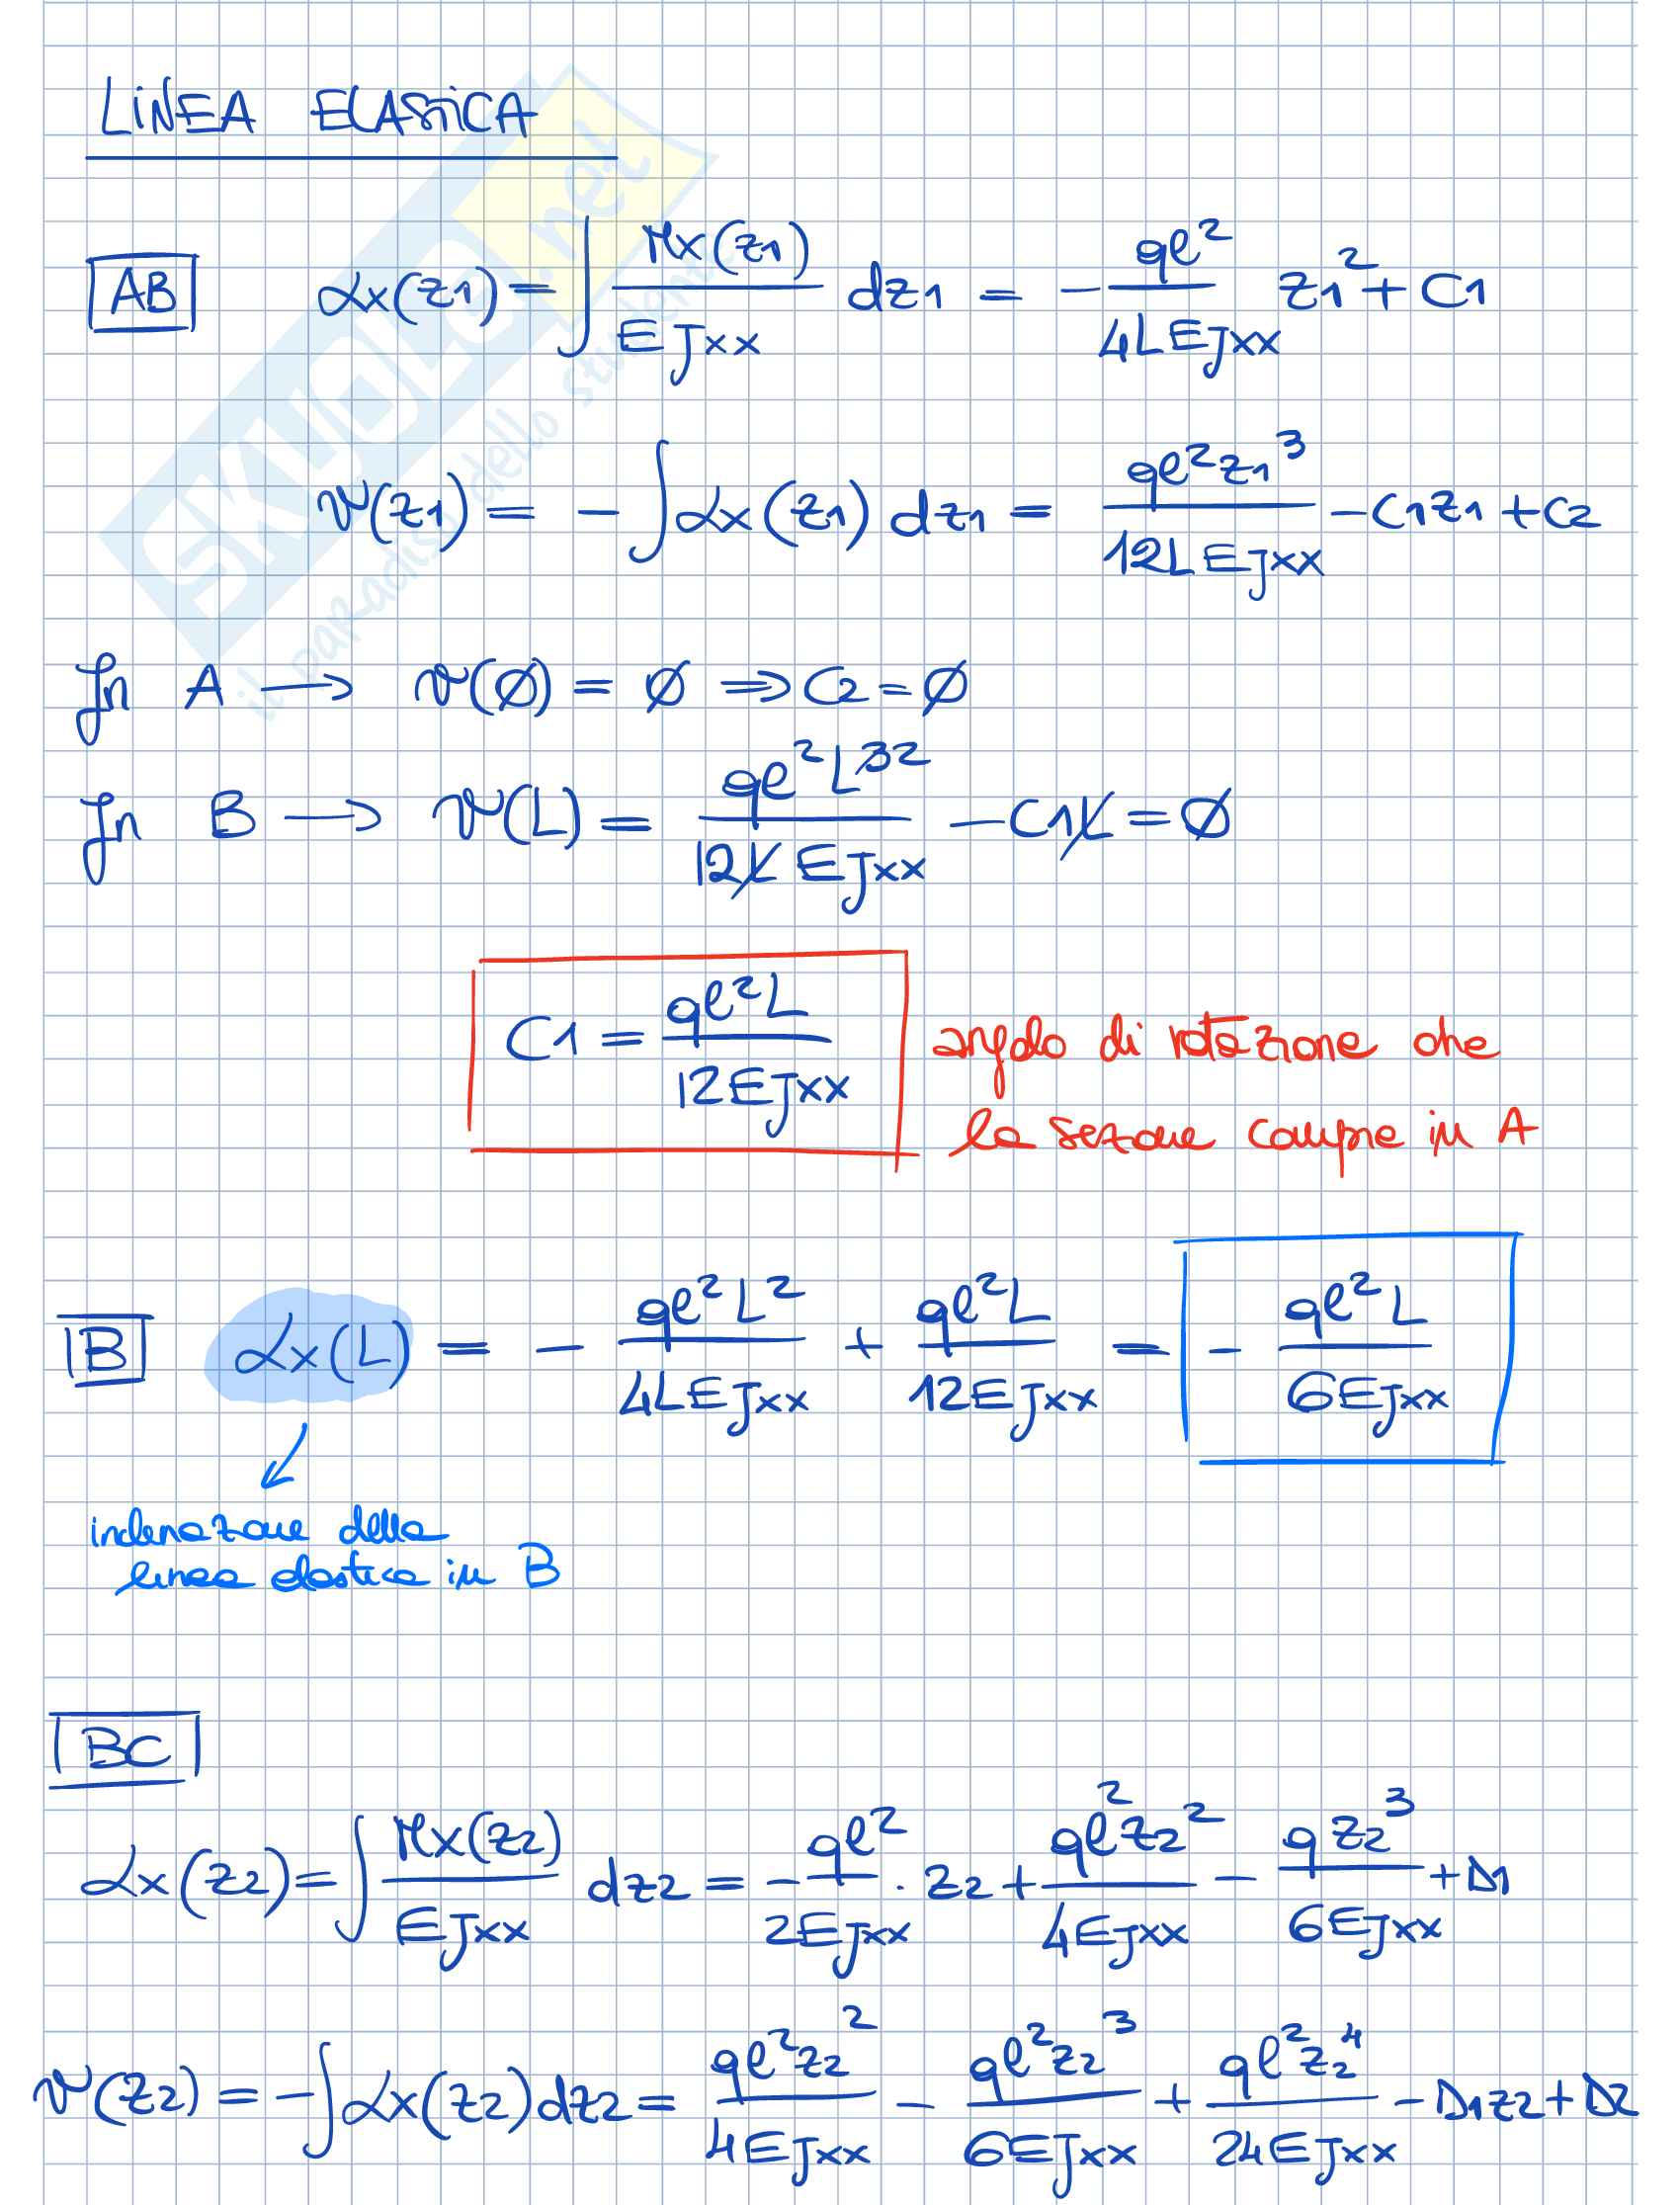 LINEA ELASTICA
AB αx(z1) = ∫ Mx(z1)/EJxx dz1 = - qℓ²/4LEJxx z1² + C1
v(z1) = - ∫ αx(z1) dz1 = qℓ²z1³/12LEJxx - C1z1 + C2
In A → v(∅) = ∅ ⇒ C2 = ∅
In B → v(L) = qℓ²L³²/12LEJxx - C1L = ∅
C1 = qℓ²L/12EJxx angolo di rotazione che
la sezione compie in A
B αx(L) = - qℓ²L²/4LEJxx + qℓ²L/12EJxx = - qℓ²L/6EJxx
inclinazione della
linea elastica in B
BC
αx(z2) = ∫ Mx(z2)/EJxx dz2 = - qℓ²/2EJxx · z2 + qℓ²z2²/4EJxx - qz2³/6EJxx + D1
v(z2) = - ∫ αx(z2) dz2 = qℓ²z2²/4EJxx - qℓ²z2³/6EJxx + qℓ²z2⁴/24EJxx - D1z2 + D2
SKUOLA.net
il paradiso dello studente